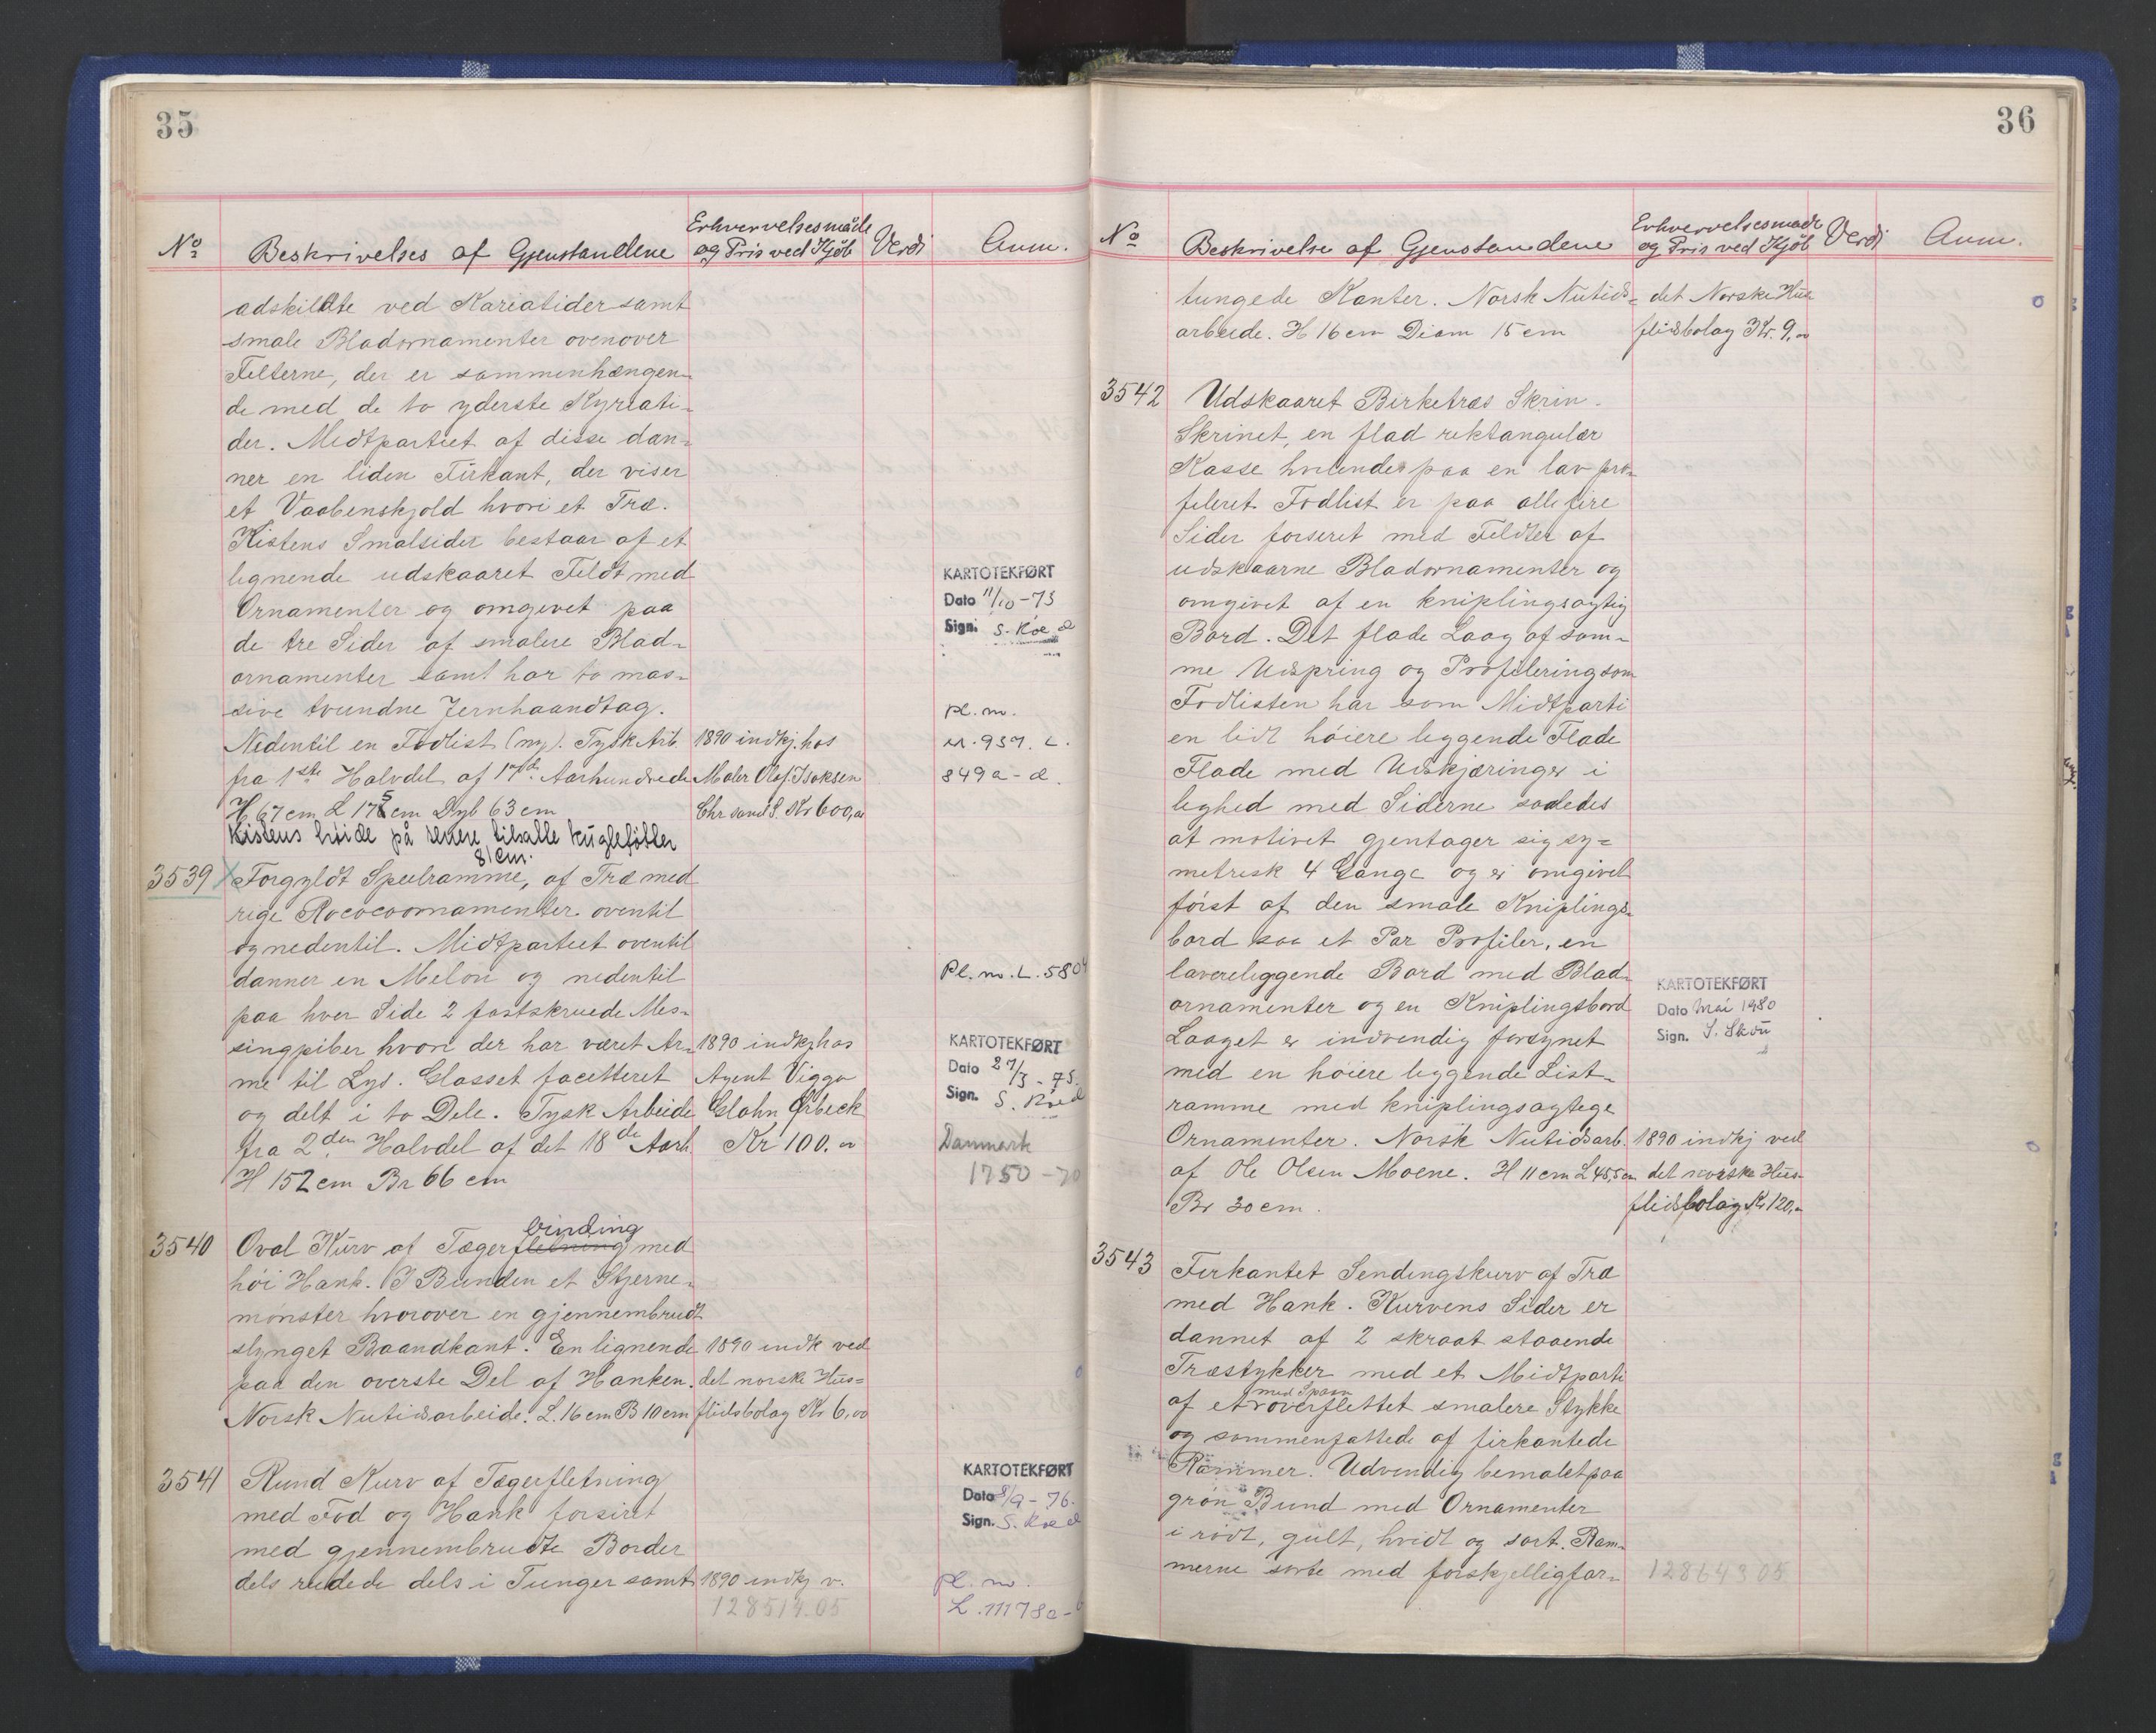 35
No Beskrivelses af Gjenstandene Erhvervelsesmåde og Pris ved Kjöb Verdi Anm.
adskildte ved Kariatider samt
smale Bladornamenter ovenover
Felterne, der er sammenhængen-
de med de to yderste Kyreati-
der. Midtpartiet af disse dan-
ner en liden Firkant, der viser
et Vaabenskjold hvori et Træ.
Kistens Smalsider bestaar af et
lignende udskaaret Feldt med
Ornamenter og omgivet paa
de tre Sider af smalere Blad-
ornamenter samt har to mas-
sive tvundne Jernhaandtag.
Nedentil en Fodlist (ny). Tysk Arb.
fra 1ste Halvdel af 17de Aarhundrede
H 67 cm L 175 cm Dyb 63 cm
Kistens höide på senere tilsatte kugleføtter
81 cm.
1890 indkj. hos
Maler Olaf Isaksen
Chr sand S. Kr 600,00
KARTOTEKFØRT
Dato 11/10-73
Sign. S. Koed
pl. no.
937. L.
849a-d.
3539 Forgyldt Speilramme, af Træ med
rige Rococoornamenter oventil
og nedentil. Midtpartiet oventil
danner en Melon og nedentil
paa hver Side 2 fastskruede Mes-
singpiber hvori der har været Ar-
me til Lys. Glasset facetteret
og delt i to Dele. Tysk Arbeide
fra 2den Halvdel af det 18de Aarh
H 152 cm Br 66 cm
1890 indkj hos
Agent Viggo
Glahn Ørbeck
Kr 100.
Pl. no. L. 5804
KARTOTEKFØRT
Dato 27/3-75.
Sign. S. Koed
Danmark
1750-70
3540 Oval Kurv af Tægerfletning med
binding
höi Hank. I Bunden et Stjerne-
mønster hvorover en gjennembrudt
slynget Baandkant. En lignende
paa den øverste Del af Hanken.
Norsk Nutidsarbeide. L. 16 cm B 10 cm
1890 indk ved
det norske Hus-
flidsbolag Kr 6,00
3541 Rund Kurv af Tægerfletning
med Fod og Hank forsiret
med gjennembrudte Border
dels rudede dels i Tunger samt
1890 indkj v.
128514.05
KARTOTEKFØRT
Dato 8/9-76.
Sign. S. Koed
pl. no.
L. 11178a-
36
No Beskrivelse af Gjenstandene Erhvervelsesmåde og Pris ved Kjöb Verdi Anm.
tungede Kanter. Norsk Nutids-
arbeide. H 16 cm Diam 15 cm
det Norske Hus
flidsbolag Kr. 9,
3542 Udskaaret Birketræs Skrin.
Skrinet, en flad rektangulær
Kasse hvilende paa en lav pro-
fileret Fodlist er paa alle fire
Sider forseret med Feldter af
udskaarne Bladornamenter og
omgivet af en kniplingsagtig
Bord. Det flade Laag af sam-
me Udspring og Profilering som
Fodlisten har som Midtparti
en lidt höiere leggende Flade
Flade med Udskjæringer i
lighed med Siderne saaledes
at motivet gjentager sig sy-
metrisk 4 Gange og er omgivet
först af den smale Kniplings-
bord saa et Par Profiler, en
lavereliggende Bord med Blad-
ornamenter og en Kniplingsbord
Laaget er indvendig forsynet
med en höiere leggende List-
ramme med kniplingsagtige
Ornamenter. Norsk Nutidsarb.
af Ole Olsen Moene. H 11 cm L 45,5 cm
Br 30 cm.
KARTOTEKFØRT
Dato Mai 1980
Sign. S. Skou
1890 indkj ved
det norske Hus-
flidsbolag Kr 120,
3543 Firkantet Sendingskurv af Træ
med Hank. Kurvens Sider er
dannet af 2 skraat staaende
Træstykker med et Midtparti
med Spaan
af et overflettet smalere Stykke
og sammenfattede af firkantede
Rammer. Udvendig bemalet paa
grön Bund med Ornamenter
i rödt, gult, hvidt og sort. Ram-
merne sorte med forskjelligfar-
128643 05